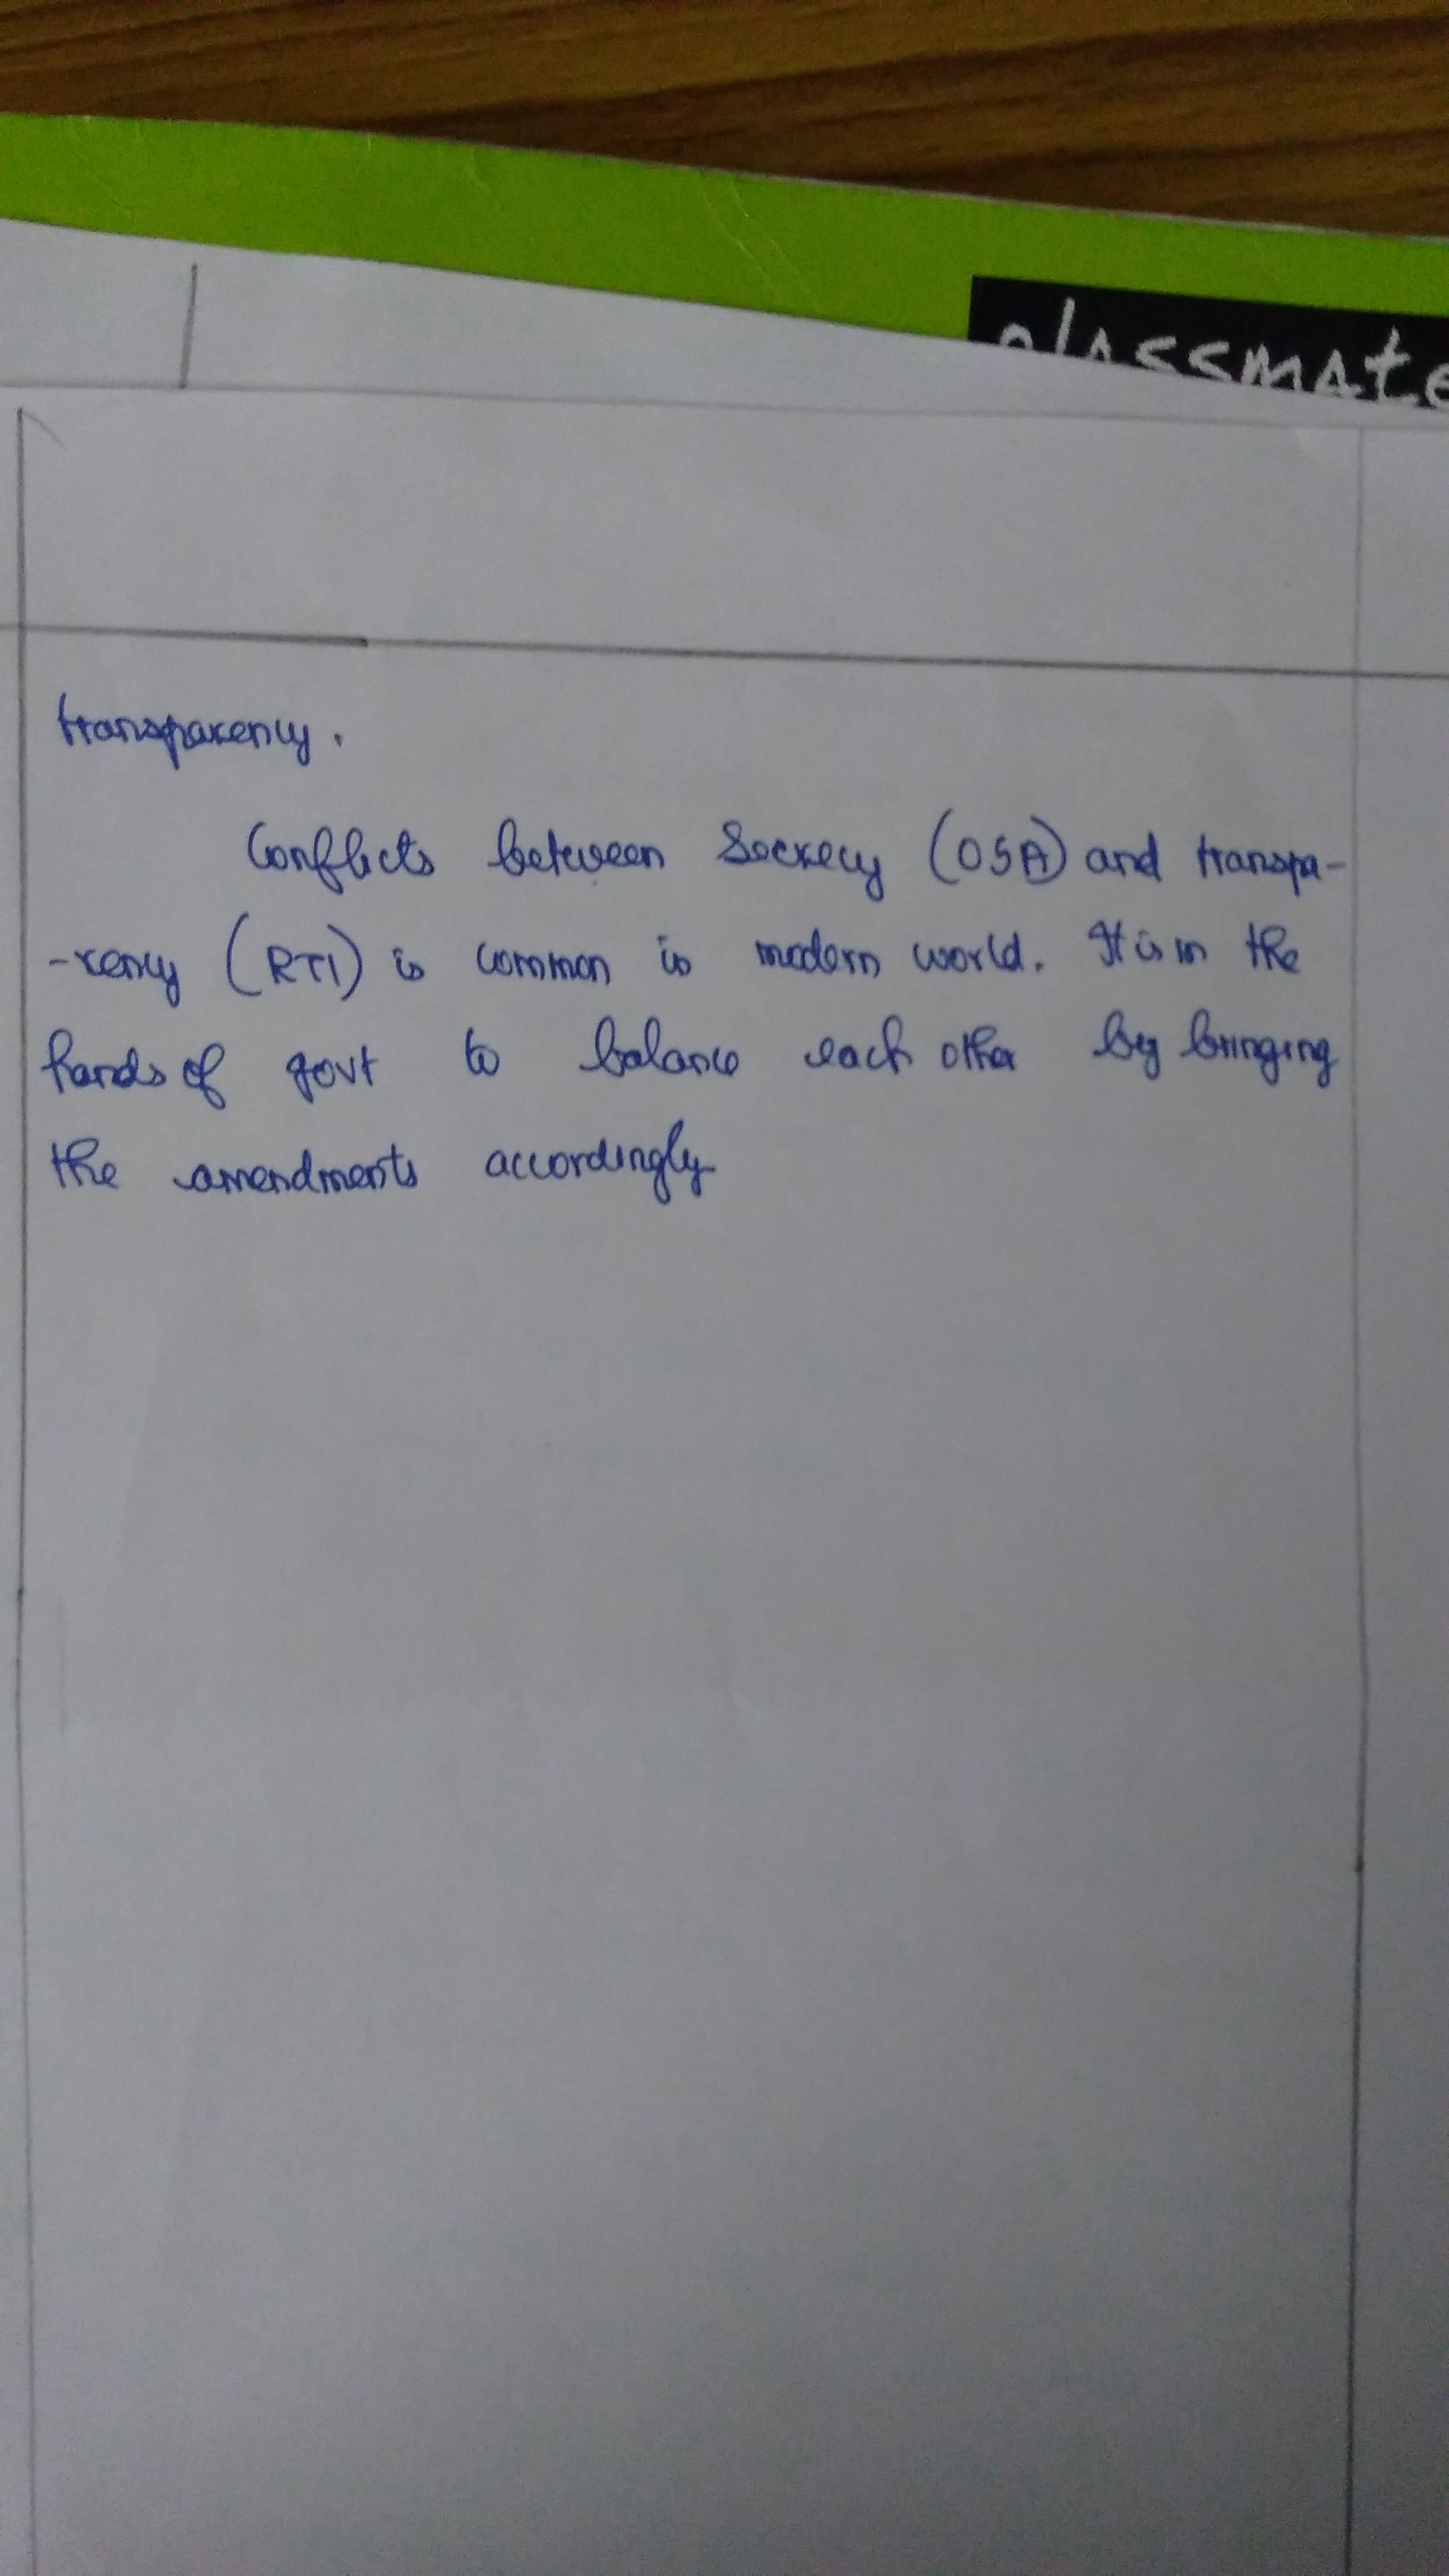 classmate
transparency.
Conflicts between Secrecy (OSA) and transpa-
-rency (RTI) is common is modern world. It is in the
hands of govt to balance each other by bringing
the amendments accordingly